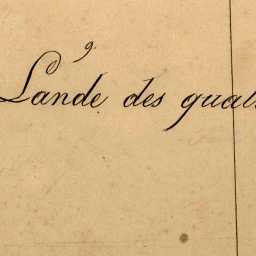 9.
Lande des quat